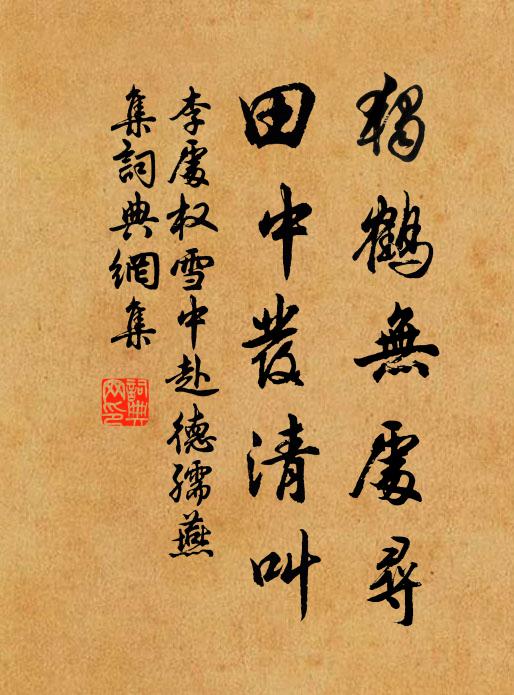 獨鶴無處尋
田中發清叫
李處权雪中赴德孺燕
集詞典網集
詞典网印